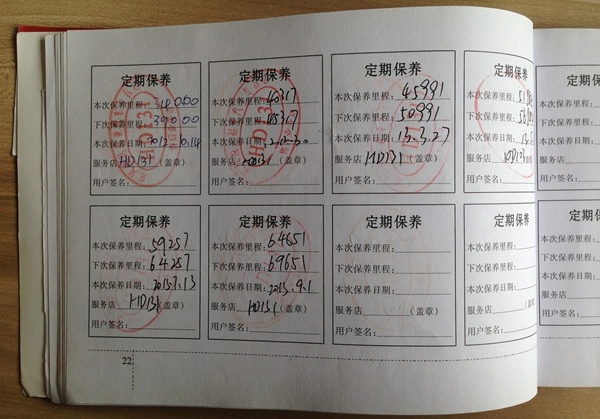 定期保养
本次保养里程: 34000
下次保养里程: 39000
本次保养日期:
服务店 HD131 (盖章)
用户签名:
定期保养
本次保养里程: 40317
下次保养里程: 45317
本次保养日期:
服务店 HD131 (盖章)
用户签名:
定期保养
本次保养里程: 45991
下次保养里程: 50991
本次保养日期: 13.3.27
服务店 HD131 (盖章)
用户签名:
定期保养
本次保养里程:
下次保养里程:
本次保养日期:
服务店 HD131 (盖章)
用户签名:
本次保
下次保
本次保
服务店
用户签
定期保养
本次保养里程: 59257
下次保养里程: 64257
本次保养日期: 2015.7.13
服务店 HD131 (盖章)
用户签名:
定期保养
本次保养里程: 64651
下次保养里程: 69651
本次保养日期: 2015.9.1
服务店 HD131 (盖章)
用户签名:
定期保养
本次保养里程:
下次保养里程:
本次保养日期:
服务店 (盖章)
用户签名:
定期保养
本次保养里程:
下次保养里程:
本次保养日期:
服务店 (盖章
用户签名:
本次保
下次保
本次保
服务店
用户签
22